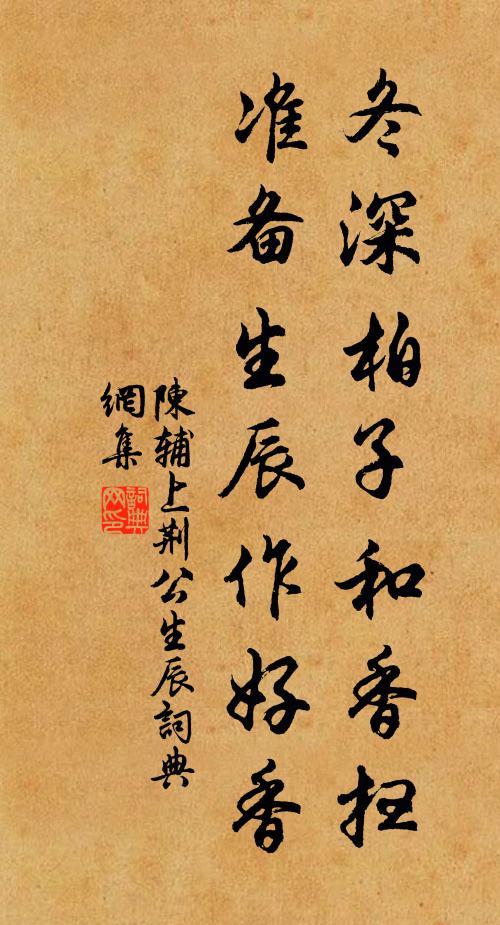 冬深柏子和香扫
准备生辰作好香
陳輔上荆公生辰詞典
網集
詞典網印